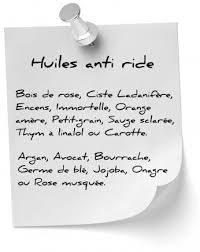 Huiles anti ride
Bois de rose, Ciste Ladanifère,
Encens, Immortelle, Orange
amère, Petit-grain, Sauge sclarée,
Thym à linalol ou Carotte.
Argan, Avocat, Bourrache,
Germe de blé, Jojoba, Onagre
ou Rose musquée.